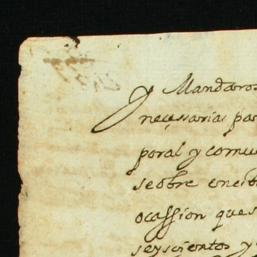 Y Mandaros
neçessaria par
poral y comu
seobre en
ocassion que s
seyscientos y